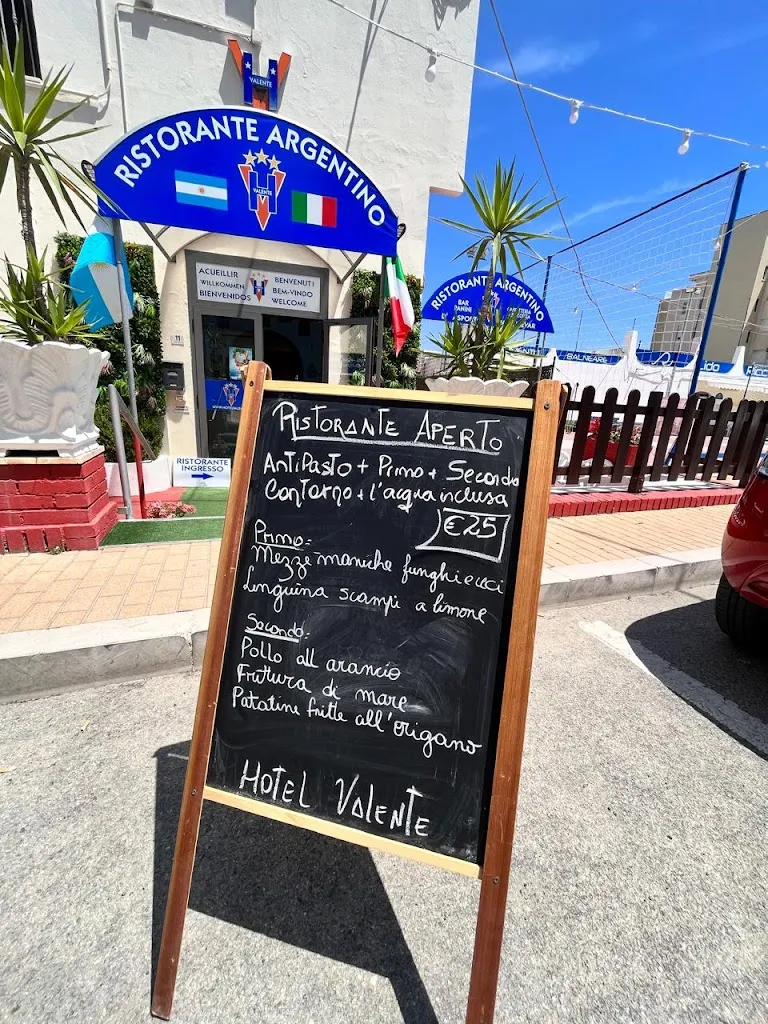 VALENTE
RISTORANTE ARGENTINO
VALENTE
ACUEILLIR
WILLKOMMEN
BIENVENIDOS
BENVENUTI
BEM-VINDO
WELCOME
11
RISTORANTE
INGRESSO
RISTORANTE ARGENTINO
BAR
PANINI
BALNEARE
Lido
Ricc
RISTORANTE APERTO
AntiPasto + Primo + Secondo
Contorno + l'acqua inclusa
€25
Primo:
Mezze maniche funghi e ceci
Linguina scampi a limone
Secondo:
Pollo all arancio
Fruttura di mare
Patatine fritte all'origano
HOTEL VALENTE